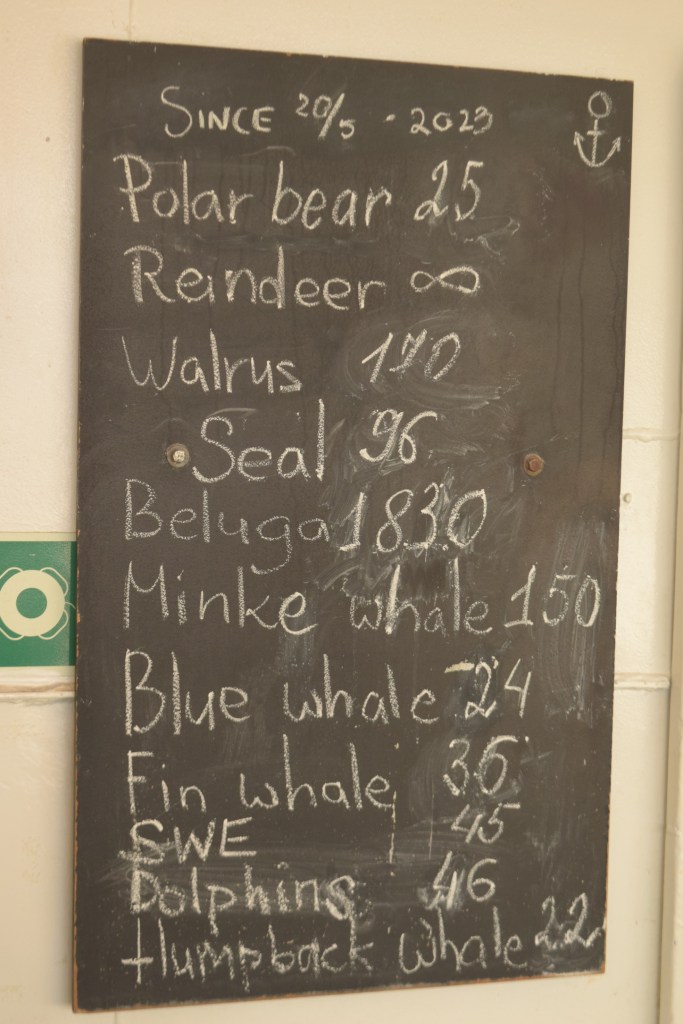 SINCE 20/5 - 2023
Polar bear 25
Reindeer ∞
Walrus 170
Seal 96
Beluga 1830
Minke whale 150
Blue whale 24
Fin whale 36
SWE 45
Dolphins 46
Humpback whale 22